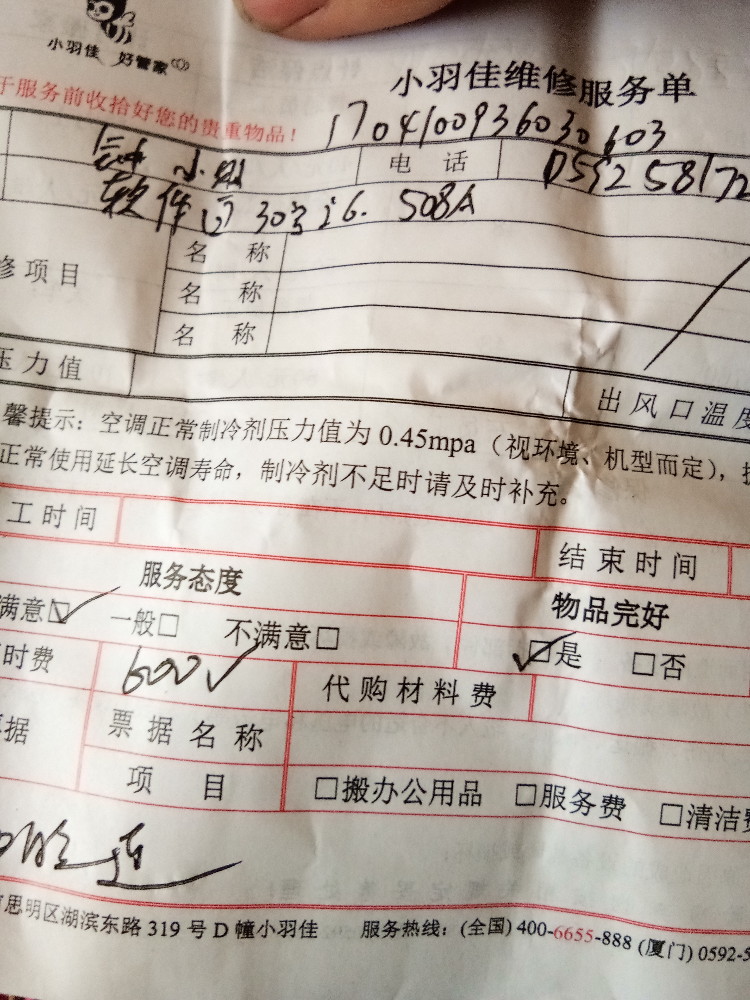 小羽佳 好管家
小羽佳维修服务单
于服务前收拾好您的贵重物品！
1704100936030603
小姐 电 话 0592 58172
软件园 30号 508A
修项目 名 称
名 称
名 称
压力值 出风口温度
馨提示：空调正常制冷剂压力值为 0.45mpa（视环境、机型而定），
正常使用延长空调寿命，制冷剂不足时请及时补充。
工时间 结束时间
服务态度 物品完好
满意☑ 一般□ 不满意□ ☑是 □否
时费 600 ✓ 代购材料费
据 票据名称
项 目 □搬办公用品 □服务费 □清洁费
思明区湖滨东路 319 号 D 幢小羽佳 服务热线：(全国) 400-6655-888 (厦门) 0592-5